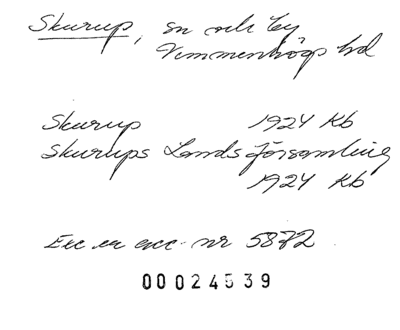 Skurup, sn och by
Vemmenhögs hd
Skurup 1924 Kb
Skurups Landsförsamling
1924 Kb
Exc ur acc. nr 5872
00024539